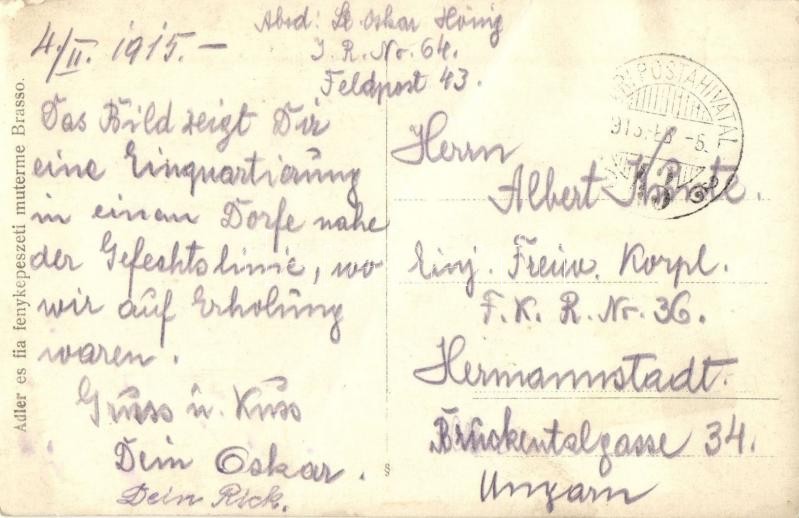 4/II. 1915.-
Absd: Lt Oskar Hönig
I. R. Nr. 64.
Feldpost 43.
Das Bild zeigt Dir
eine Einquartierung
in einem Dorfe nahe
der Gefechtslinie, wo
wir auf Erholung
waren.
Gruss u. Kuss
Dein Oskar.
Dein Rick.
Adler es fia fenykepeszeti muterme Brasso.
POSTAHIVATAL
Herrn
Albert
Einj. Freiw. Korpl.
F. K. R. Nr. 36.
Hermannstadt.
Brückentalgasse 34.
Ungarn
§